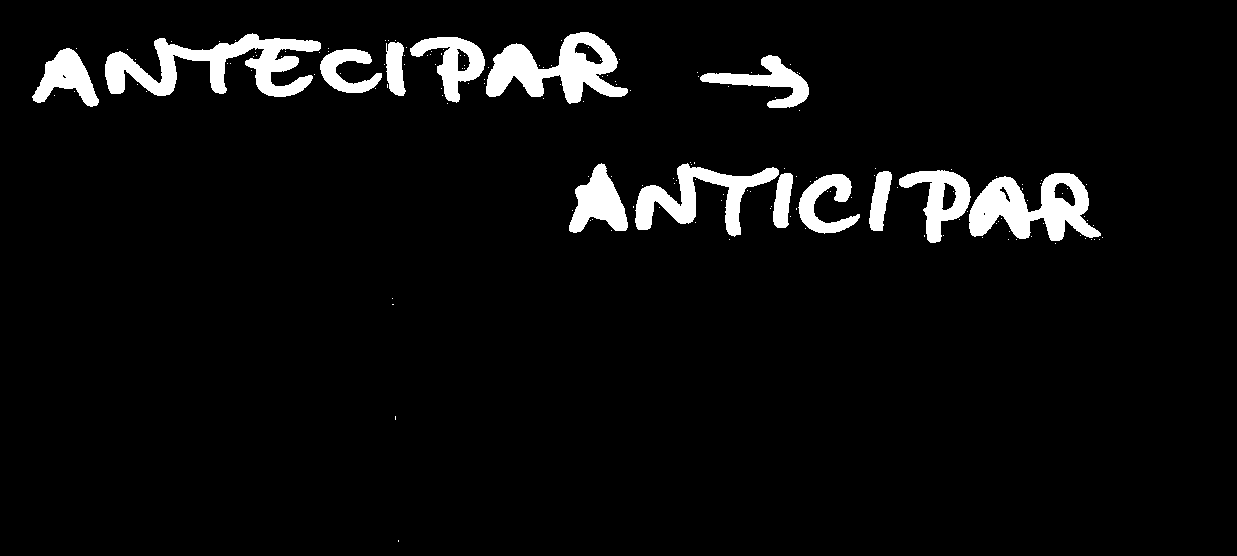 ANTECIPAR →
ANTICIPAR